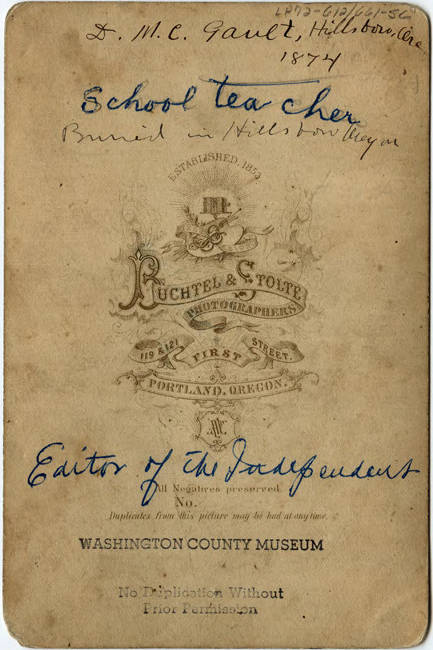 D. M. C. Gault, Hillsboro, Ore
1874
School teacher
Buried in Hillsboro Oregon
ESTABLISHED 1853
BUCHTEL & STOLTE
PHOTOGRAPHERS
119 & 121 FIRST STREET.
PORTLAND, OREGON.
Editor of the Independent
All Negatives preserved
No.
Duplicates from this picture may be had at any time.
WASHINGTON COUNTY MUSEUM
No Duplication Without
Prior Permission